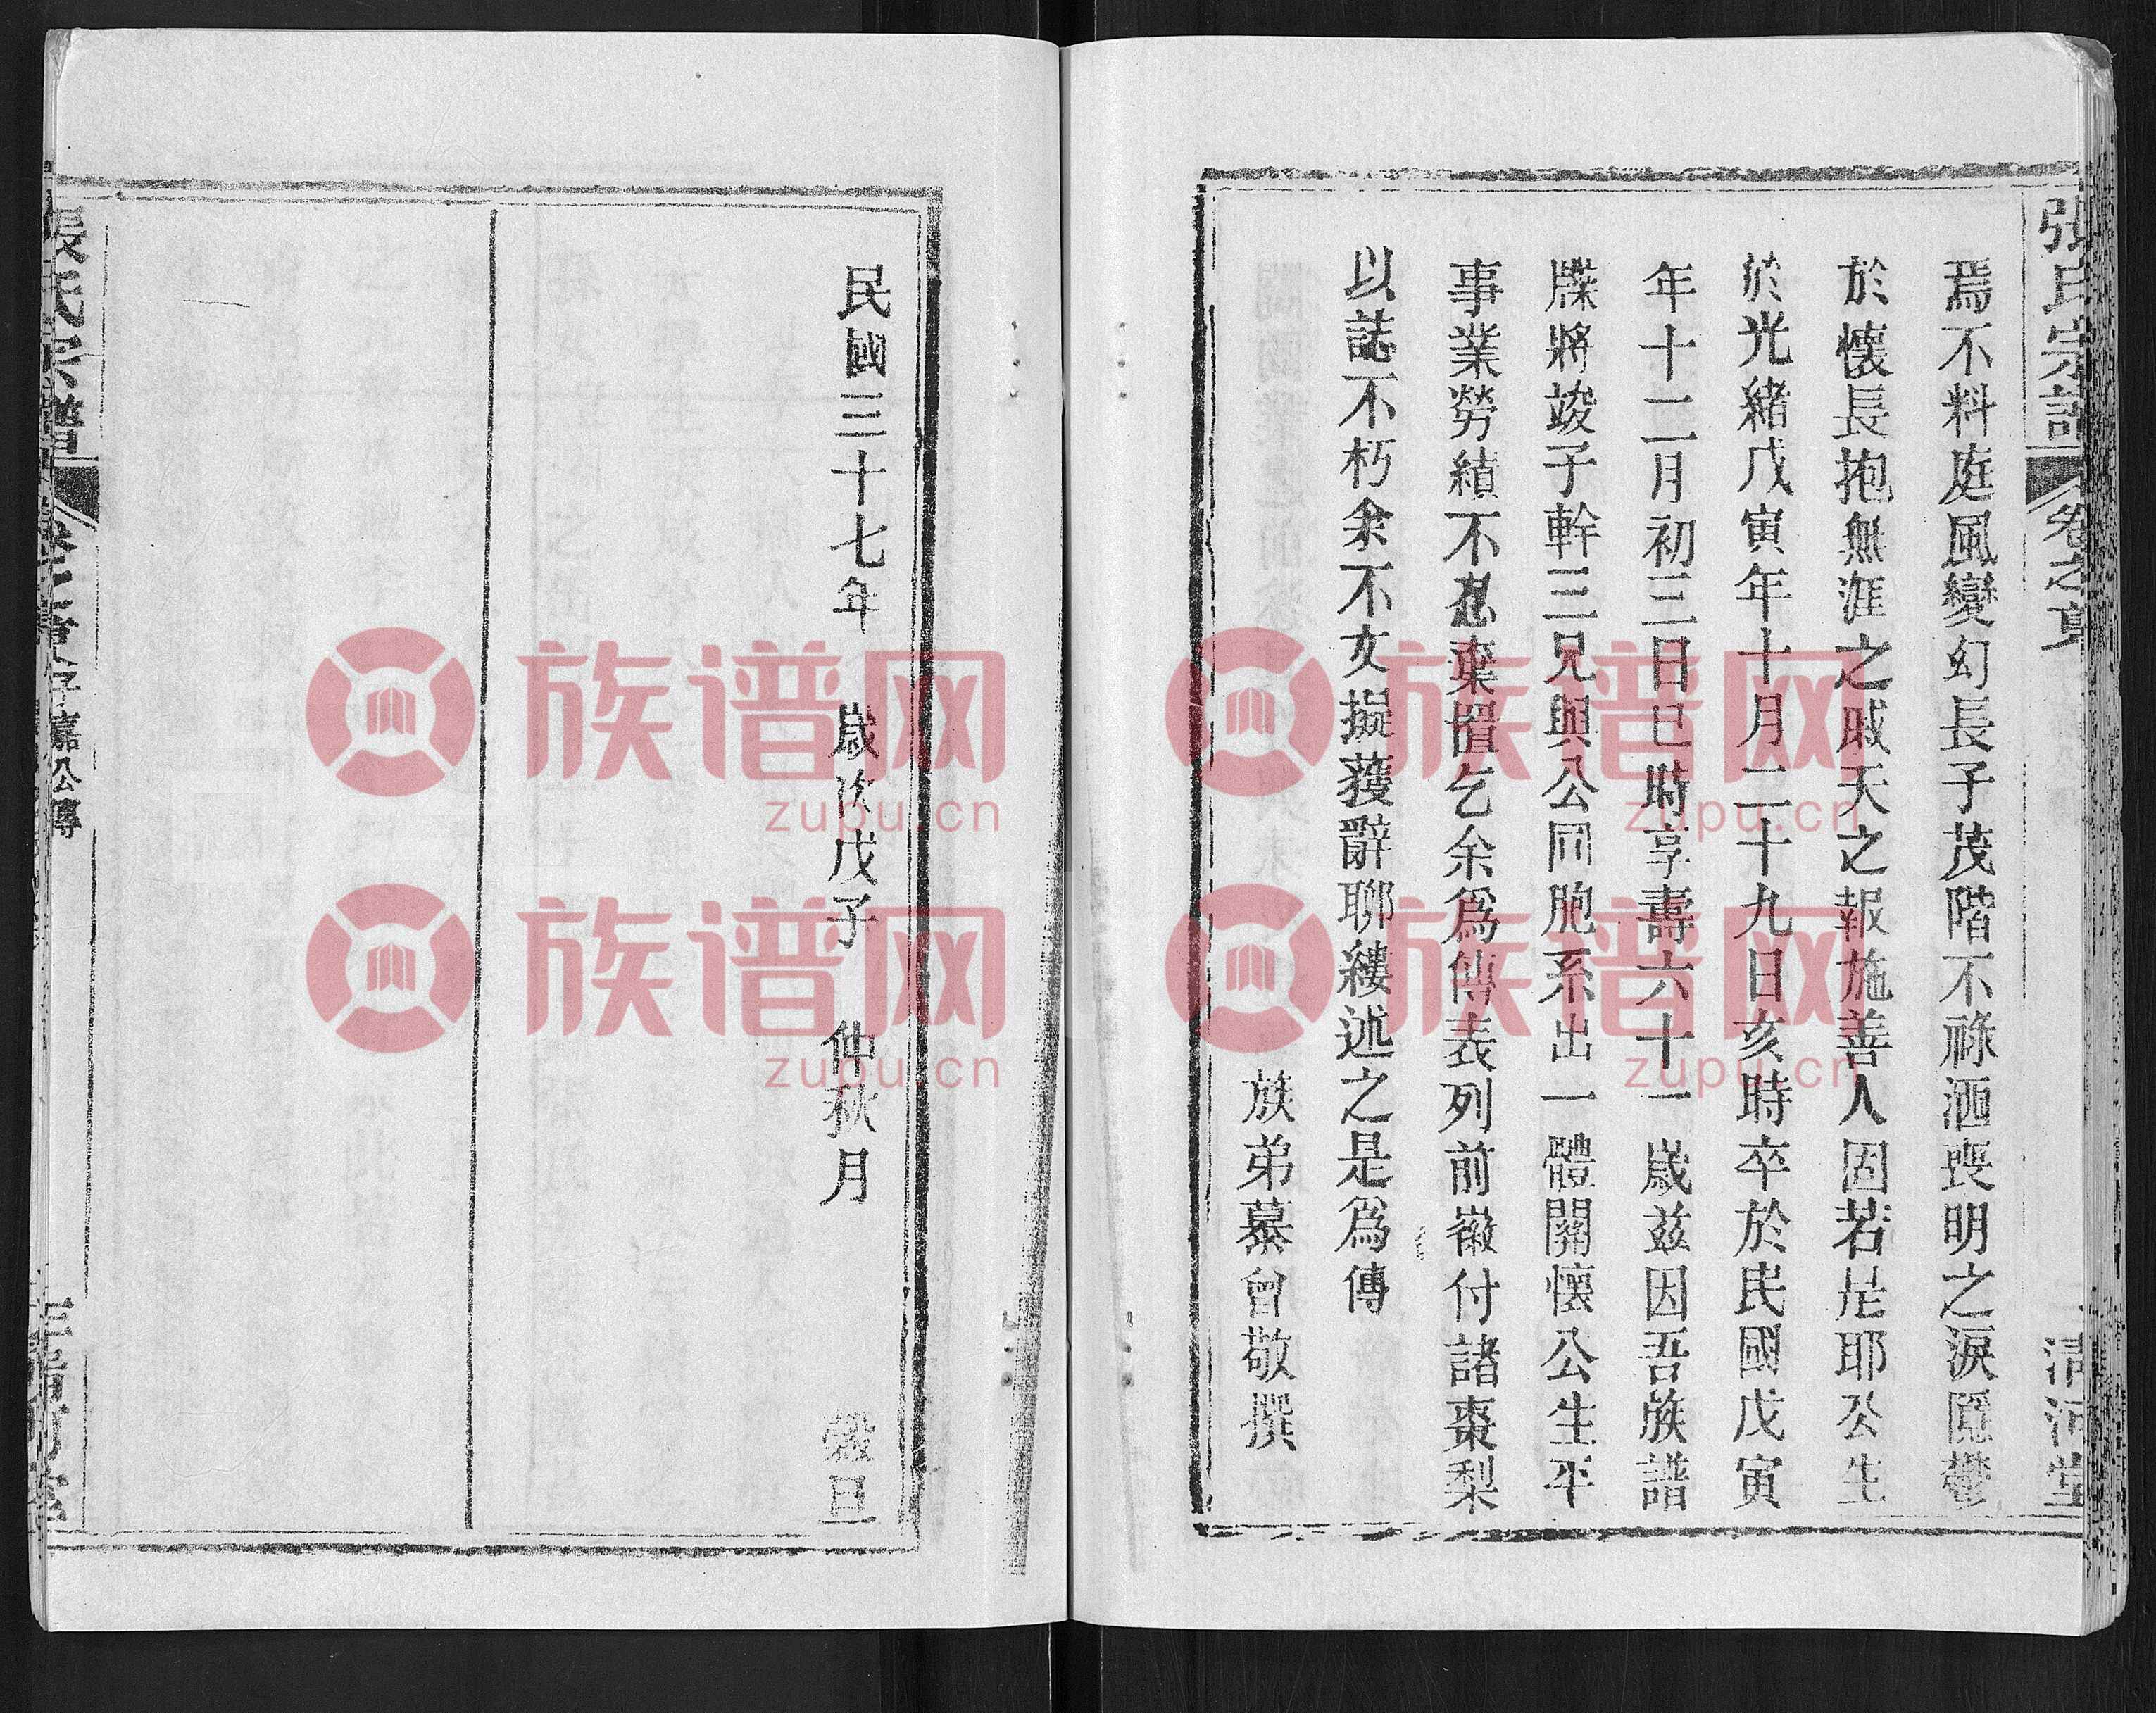 張氏宗譜 卷之首 清河堂
焉不料庭風變幻長子茂階不祿洒喪明之淚隱鬱
於懷長抱無涯之戚天之報施善人固若是耶公生
於光緒戊寅年十月二十九日亥時卒於民國戊寅
年十二月初三日巳時享壽六十一歲茲因吾族譜
牒將竣子幹三兄與公同胞系出一體關懷公生平
事業勞績不忍棄置乞余為傳表列前徽付諸棗梨
以誌不朽余不文擬蕪辭聊縷述之是為傳
族弟慕曾敬撰
民國三十七年 歲次戊子 仲秋月 穀旦
張氏宗譜 卷之首 子嘉公傳 清河堂
族谱网
zupu.cn
族谱网
zupu.cn
族谱网
zupu.cn
族谱网
zupu.cn